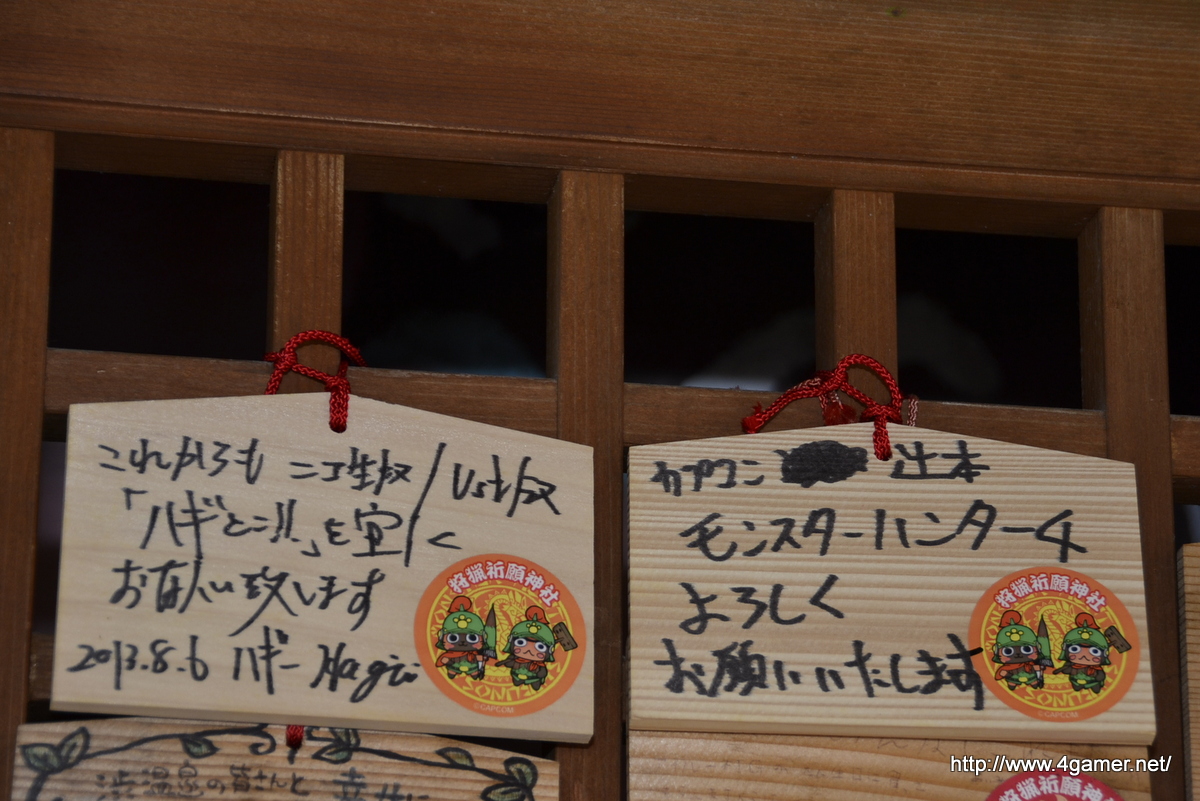 これからも ニコ生版/Ust版
「ハギとこ!!」を宜く
お願い致します
2013.8.6 ハギー Hagii
狩猟祈願神社
©CAPCOM
カプコン 辻本
モンスターハンター4
よろしく
お願いいたします
狩猟祈願神社
渋温泉の皆さんと
狩猟祈願神社
http://www.4gamer.net/